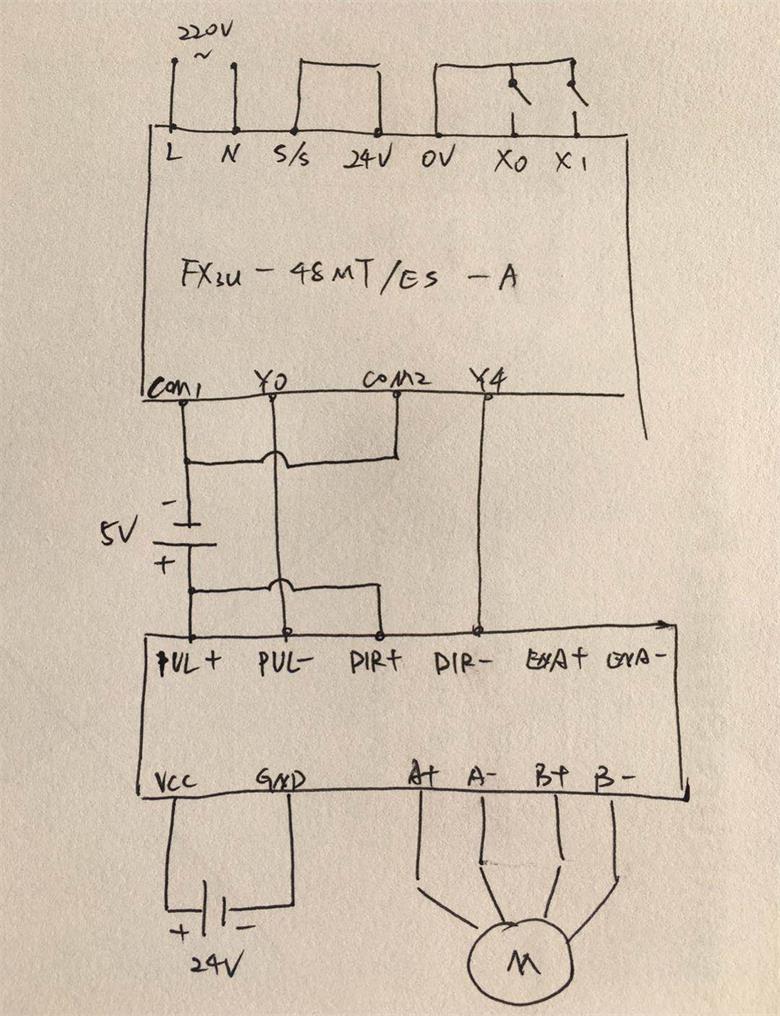 220V
~
L N S/S 24V 0V X0 X1
FX3U-48MT/ES-A
COM1 Y0 COM2 Y4
-
5V
+
PUL+ PUL- DIR+ DIR- ENA+ ENA-
VCC GND A+ A- B+ B-
+ -
24V
M